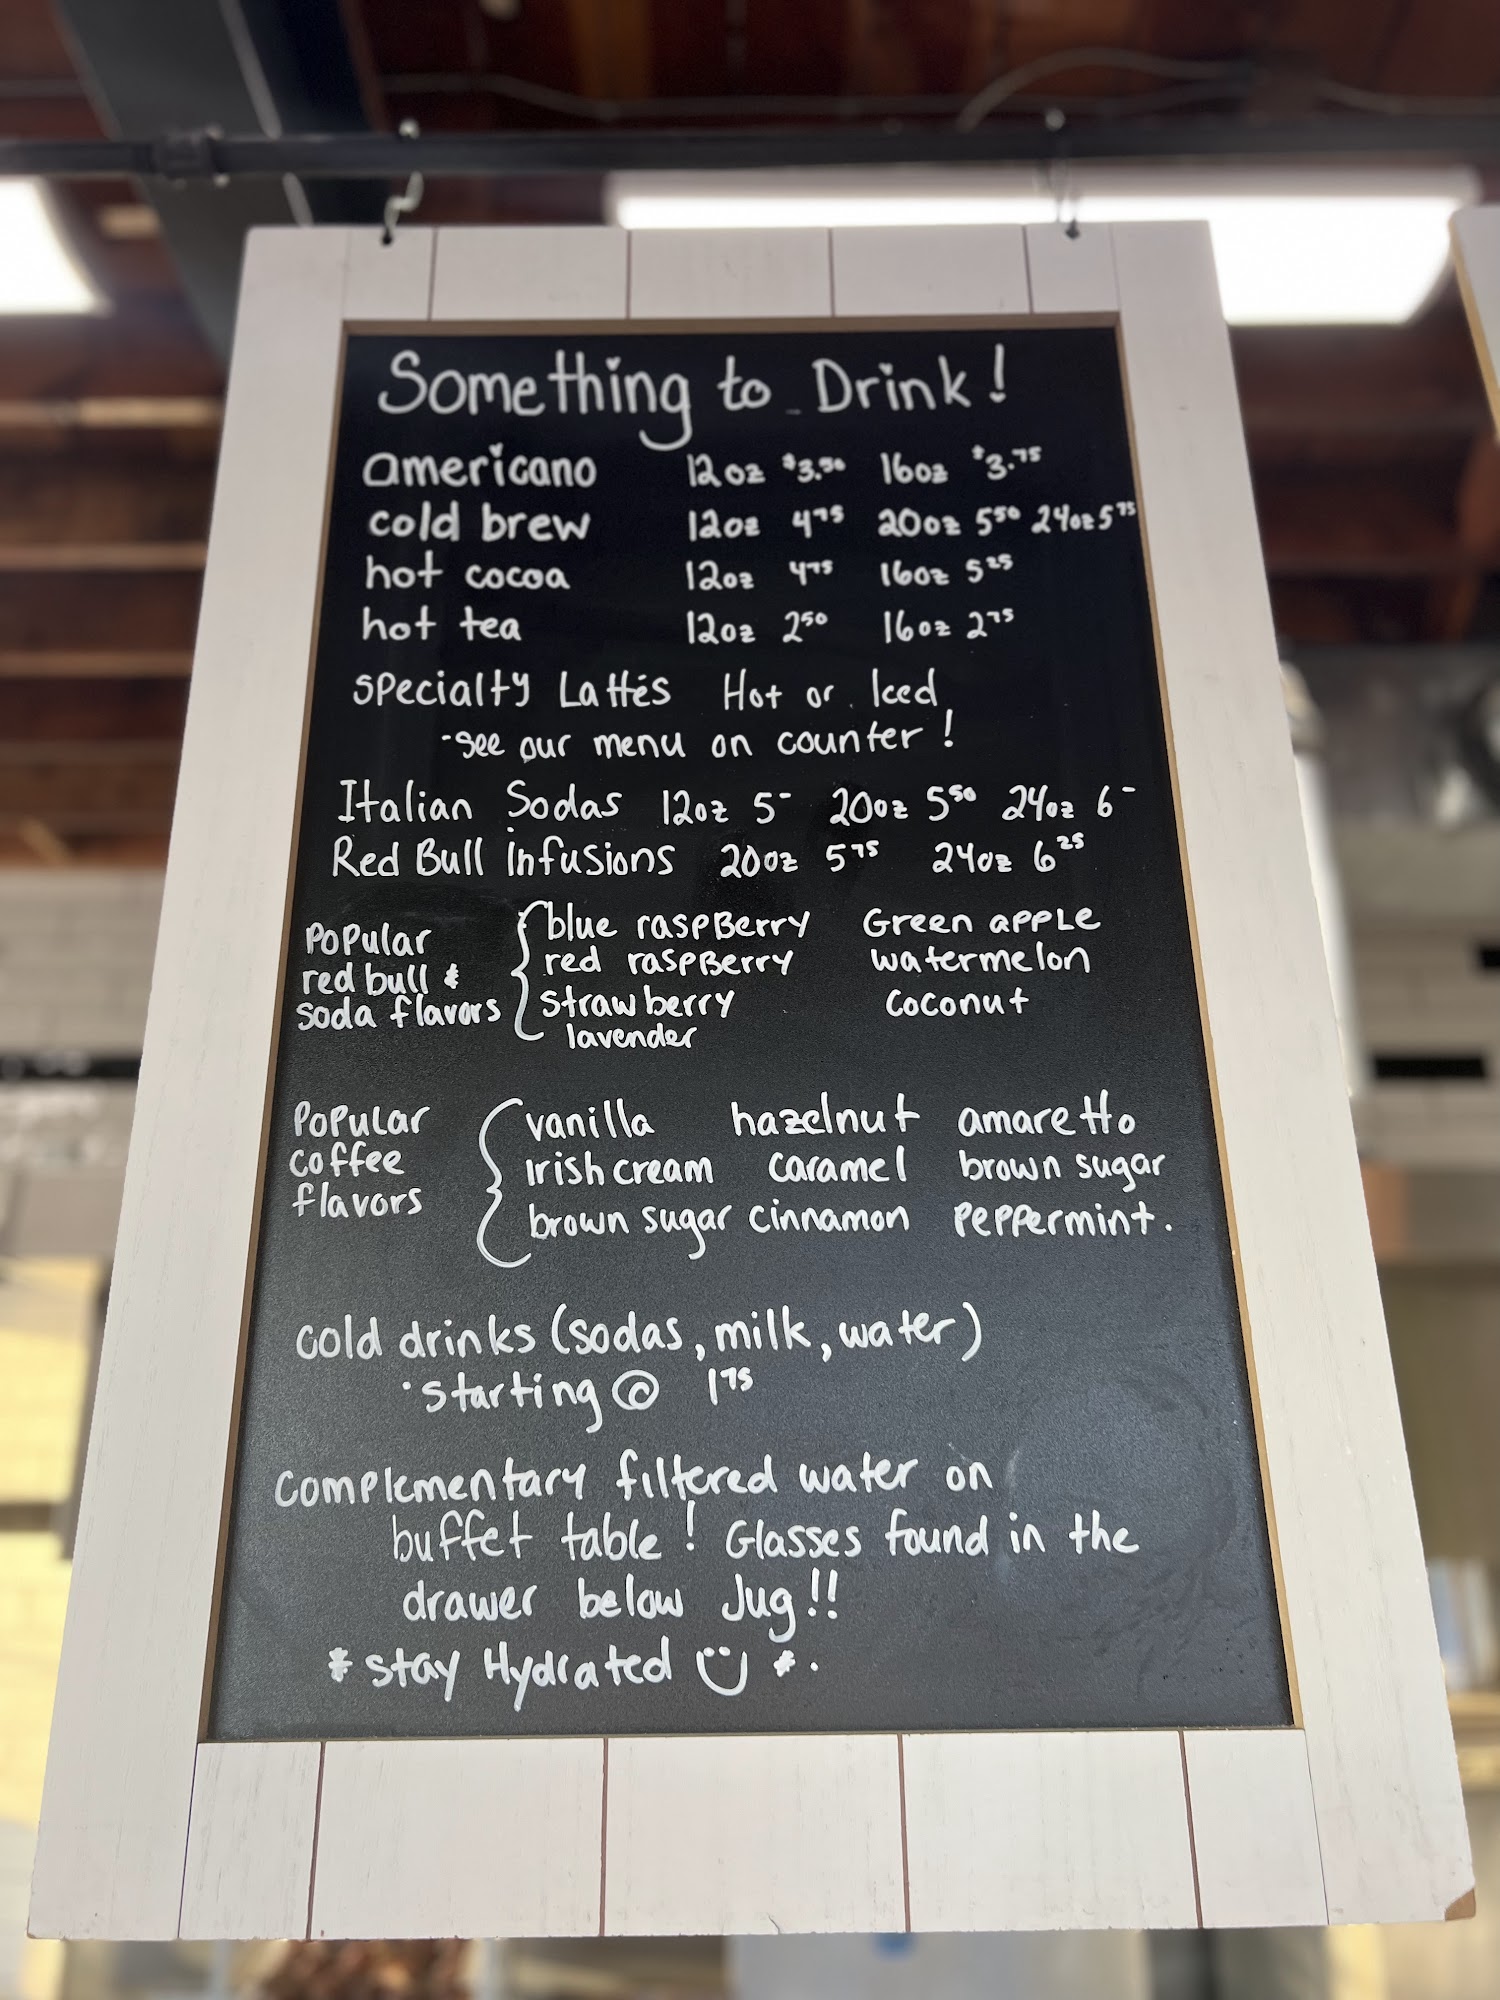 Something to Drink!
americano 12oz $3.50 16oz $3.75
cold brew 12oz 4.75 20oz 5.50 24oz 5.75
hot cocoa 12oz 4.75 16oz 5.25
hot tea 12oz 2.50 16oz 2.75
Specialty Lattés Hot or Iced
-see our menu on counter!
Italian Sodas 12oz 5- 20oz 5.50 24oz 6-
Red Bull Infusions 20oz 5.75 24oz 6.25
Popular red bull & soda flavors
blue raspberry Green apple
red raspberry watermelon
strawberry coconut
lavender
Popular coffee flavors
vanilla hazelnut amaretto
Irish cream caramel brown sugar
brown sugar cinnamon peppermint.
cold drinks (sodas, milk, water)
·starting @ 1.75
complementary filtered water on
buffet table! Glasses found in the
drawer below Jug!!
*stay Hydrated *.